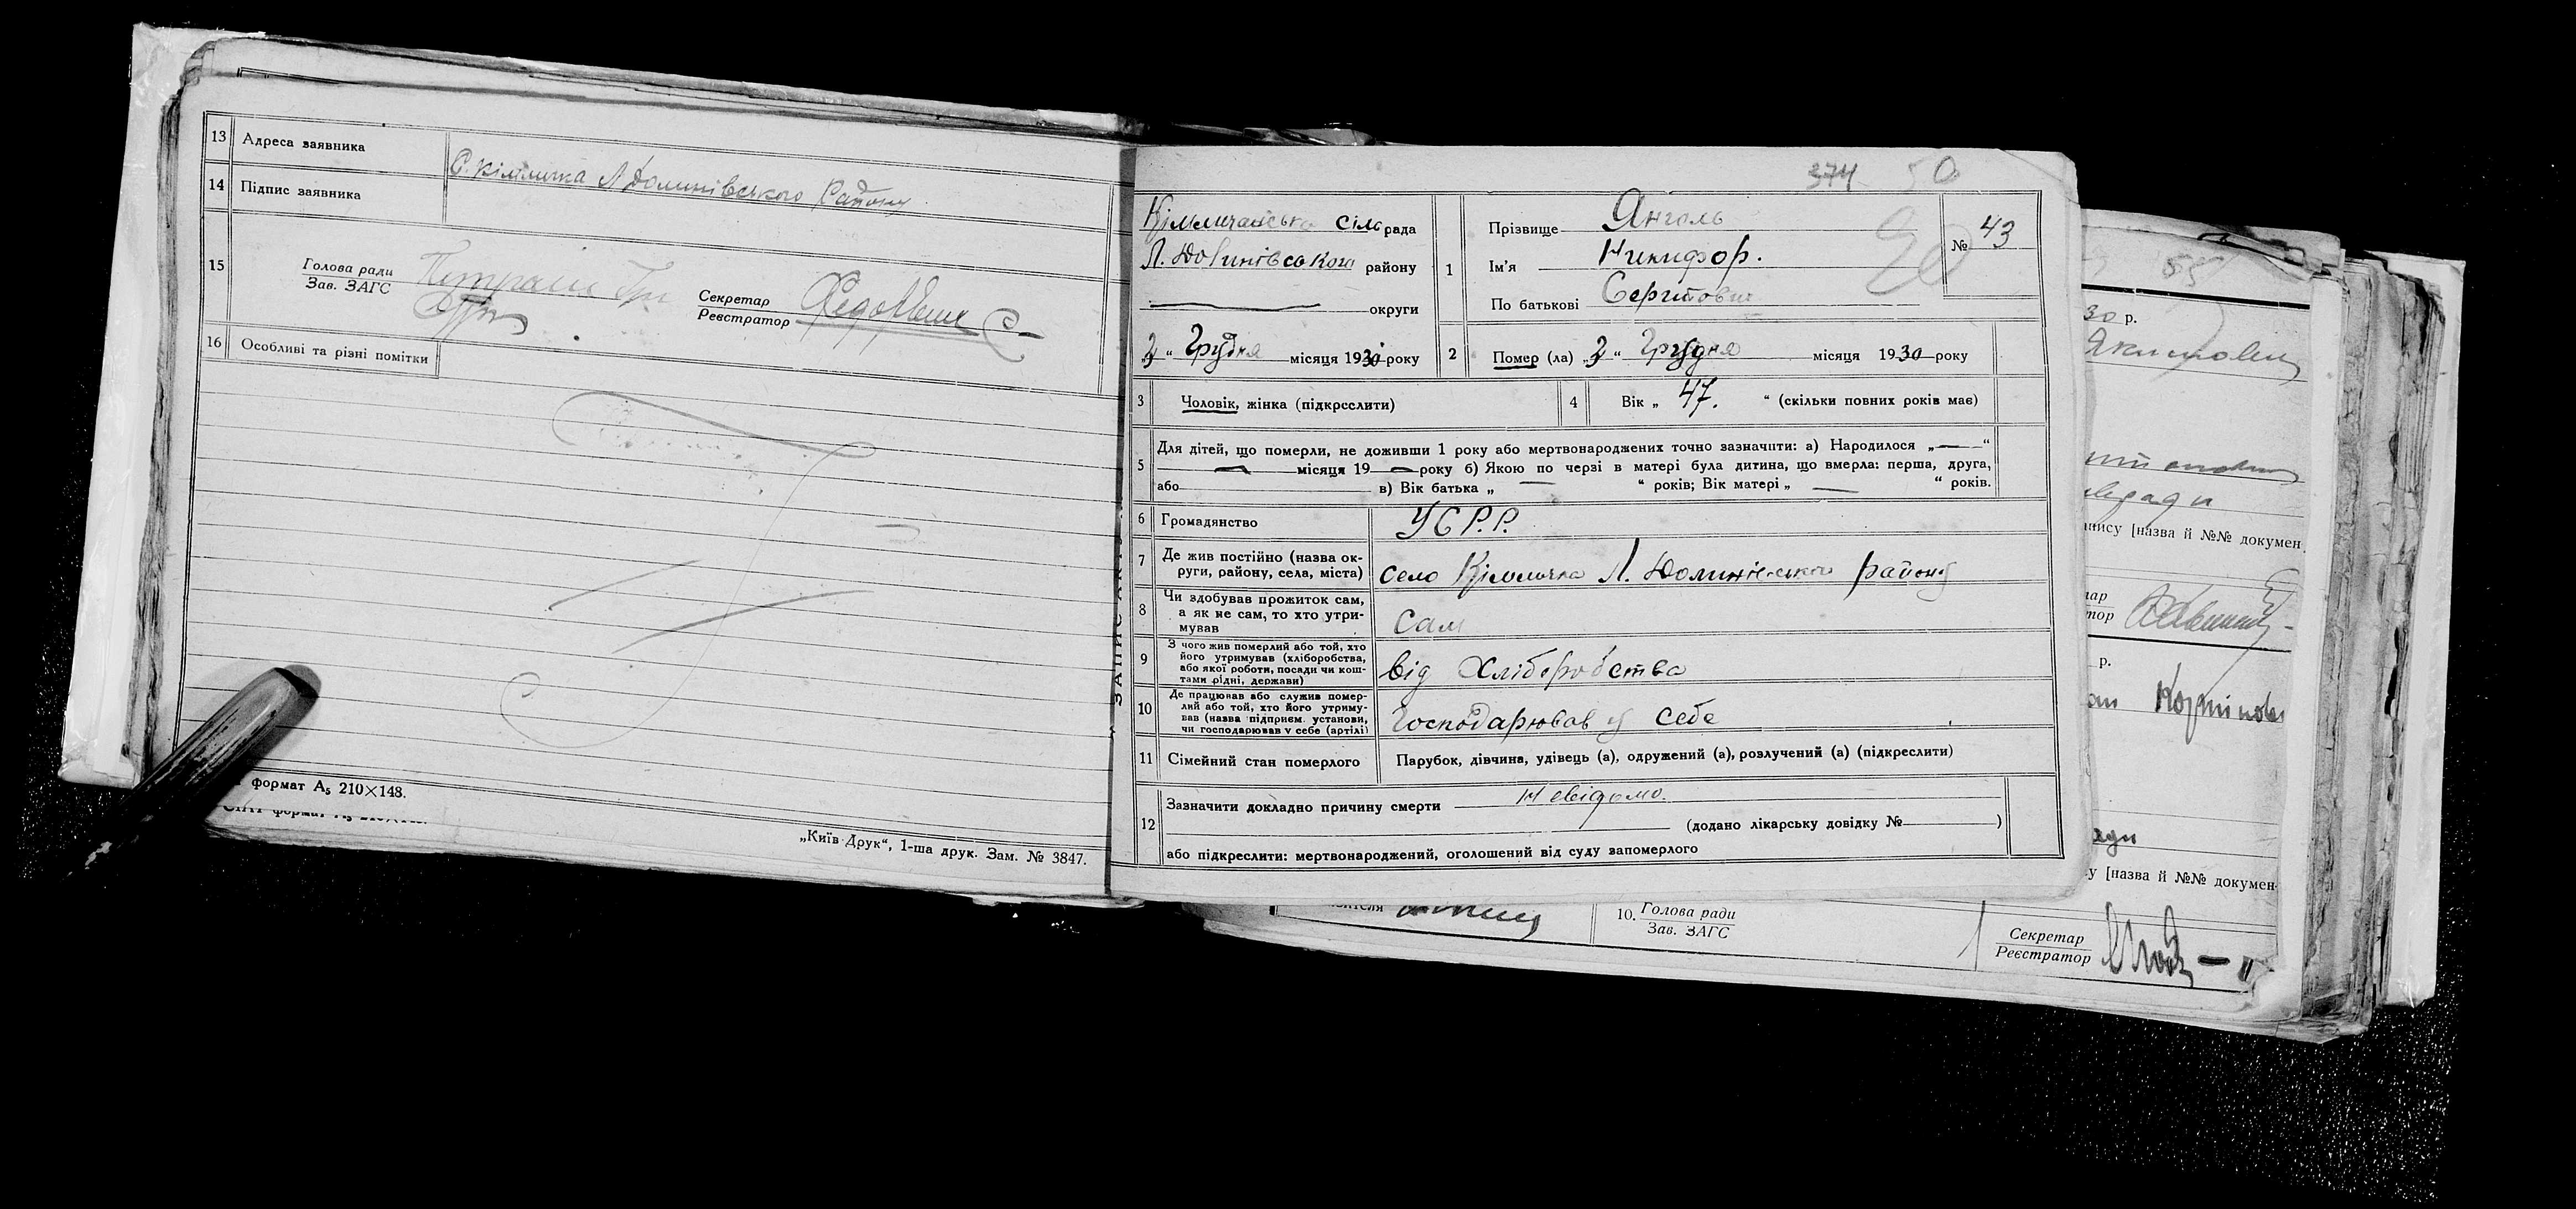 13 Адреса заявника
С. Кімличка Л Долинівського Району
14 Підпис заявника
15 Голова ради
Зав. ЗАГС
Секретар
Реєстратор
16 Особливі та різні помітки
формат А5 210×148.
„Київ Друк“, 1-ша друк. Зам. № 3847.
374 50
Кімличанська сільрада
Л. Долинівського району
округи
2 “ Грудня місяця 1930 року
1 Прізвище Янголь
Ім'я Никифор.
По батькові Сергійович
№ 43
2 Помер (ла) „2 “ Грудня місяця 1930 року
3 Чоловік, жінка (підкреслити)
4 Вік „ 47. “ (скільки повних років має)
5 Для дітей, що померли, не доживши 1 року або мертвонароджених точно зазначити: а) Народилося „ — “
місяця 19 — року б) Якою по черзі в матері була дитина, що вмерла: перша, друга,
або в) Вік батька „ — “ років; Вік матері „ — “ років.
6 Громадянство УСР.Р.
7 Де жив постійно (назва ок-
руги, району, села, міста) село Кімличка Л. Долинівського району
8 Чи здобував прожиток сам,
а як не сам, то хто утри-
мував Сам
9 З чого жив померлий або той, хто
його утримував (хліборобства,
або якої роботи, посади чи кош-
тами рідні, держави) від Хліборобства
10 Де працював або служив помер-
лий або той, хто його утриму-
вав (назва підприєм. установи,
чи господарював у себе (артілі) Господарював у себе
11 Сімейний стан померлого Парубок, дівчина, удівець (а), одружений (а), розлучений (а) (підкреслити)
12 Зазначити докладно причину смерти Невідомо.
(додано лікарську довідку № )
або підкреслити: мертвонароджений, оголошений від суду запомерлого
55
30 р.
Якимович
пису [назва й №№ докумен.
р.
у [назва й №№ докумен
10. Голова ради
Зав. ЗАГС
Секретар
Реєстратор